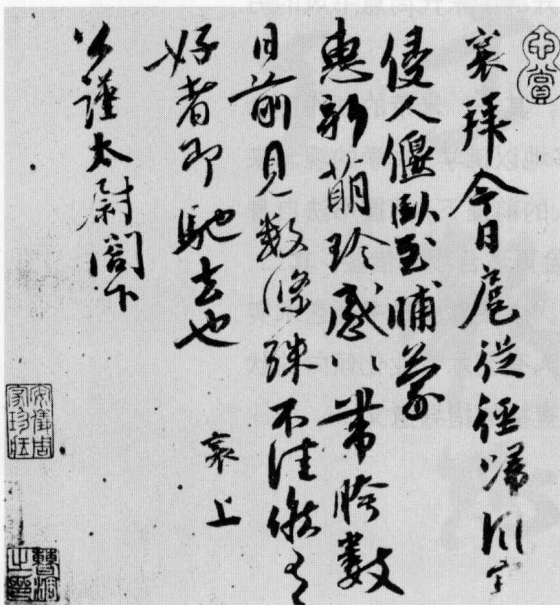 襄拜今日扈從徑歸風寒
侵人偃臥至晡蒙
惠新萌珍感〻帶胯數
日前見數條殊不佳候有
好者即馳去也
襄上
公謹太尉閤下
安儀周家珍藏